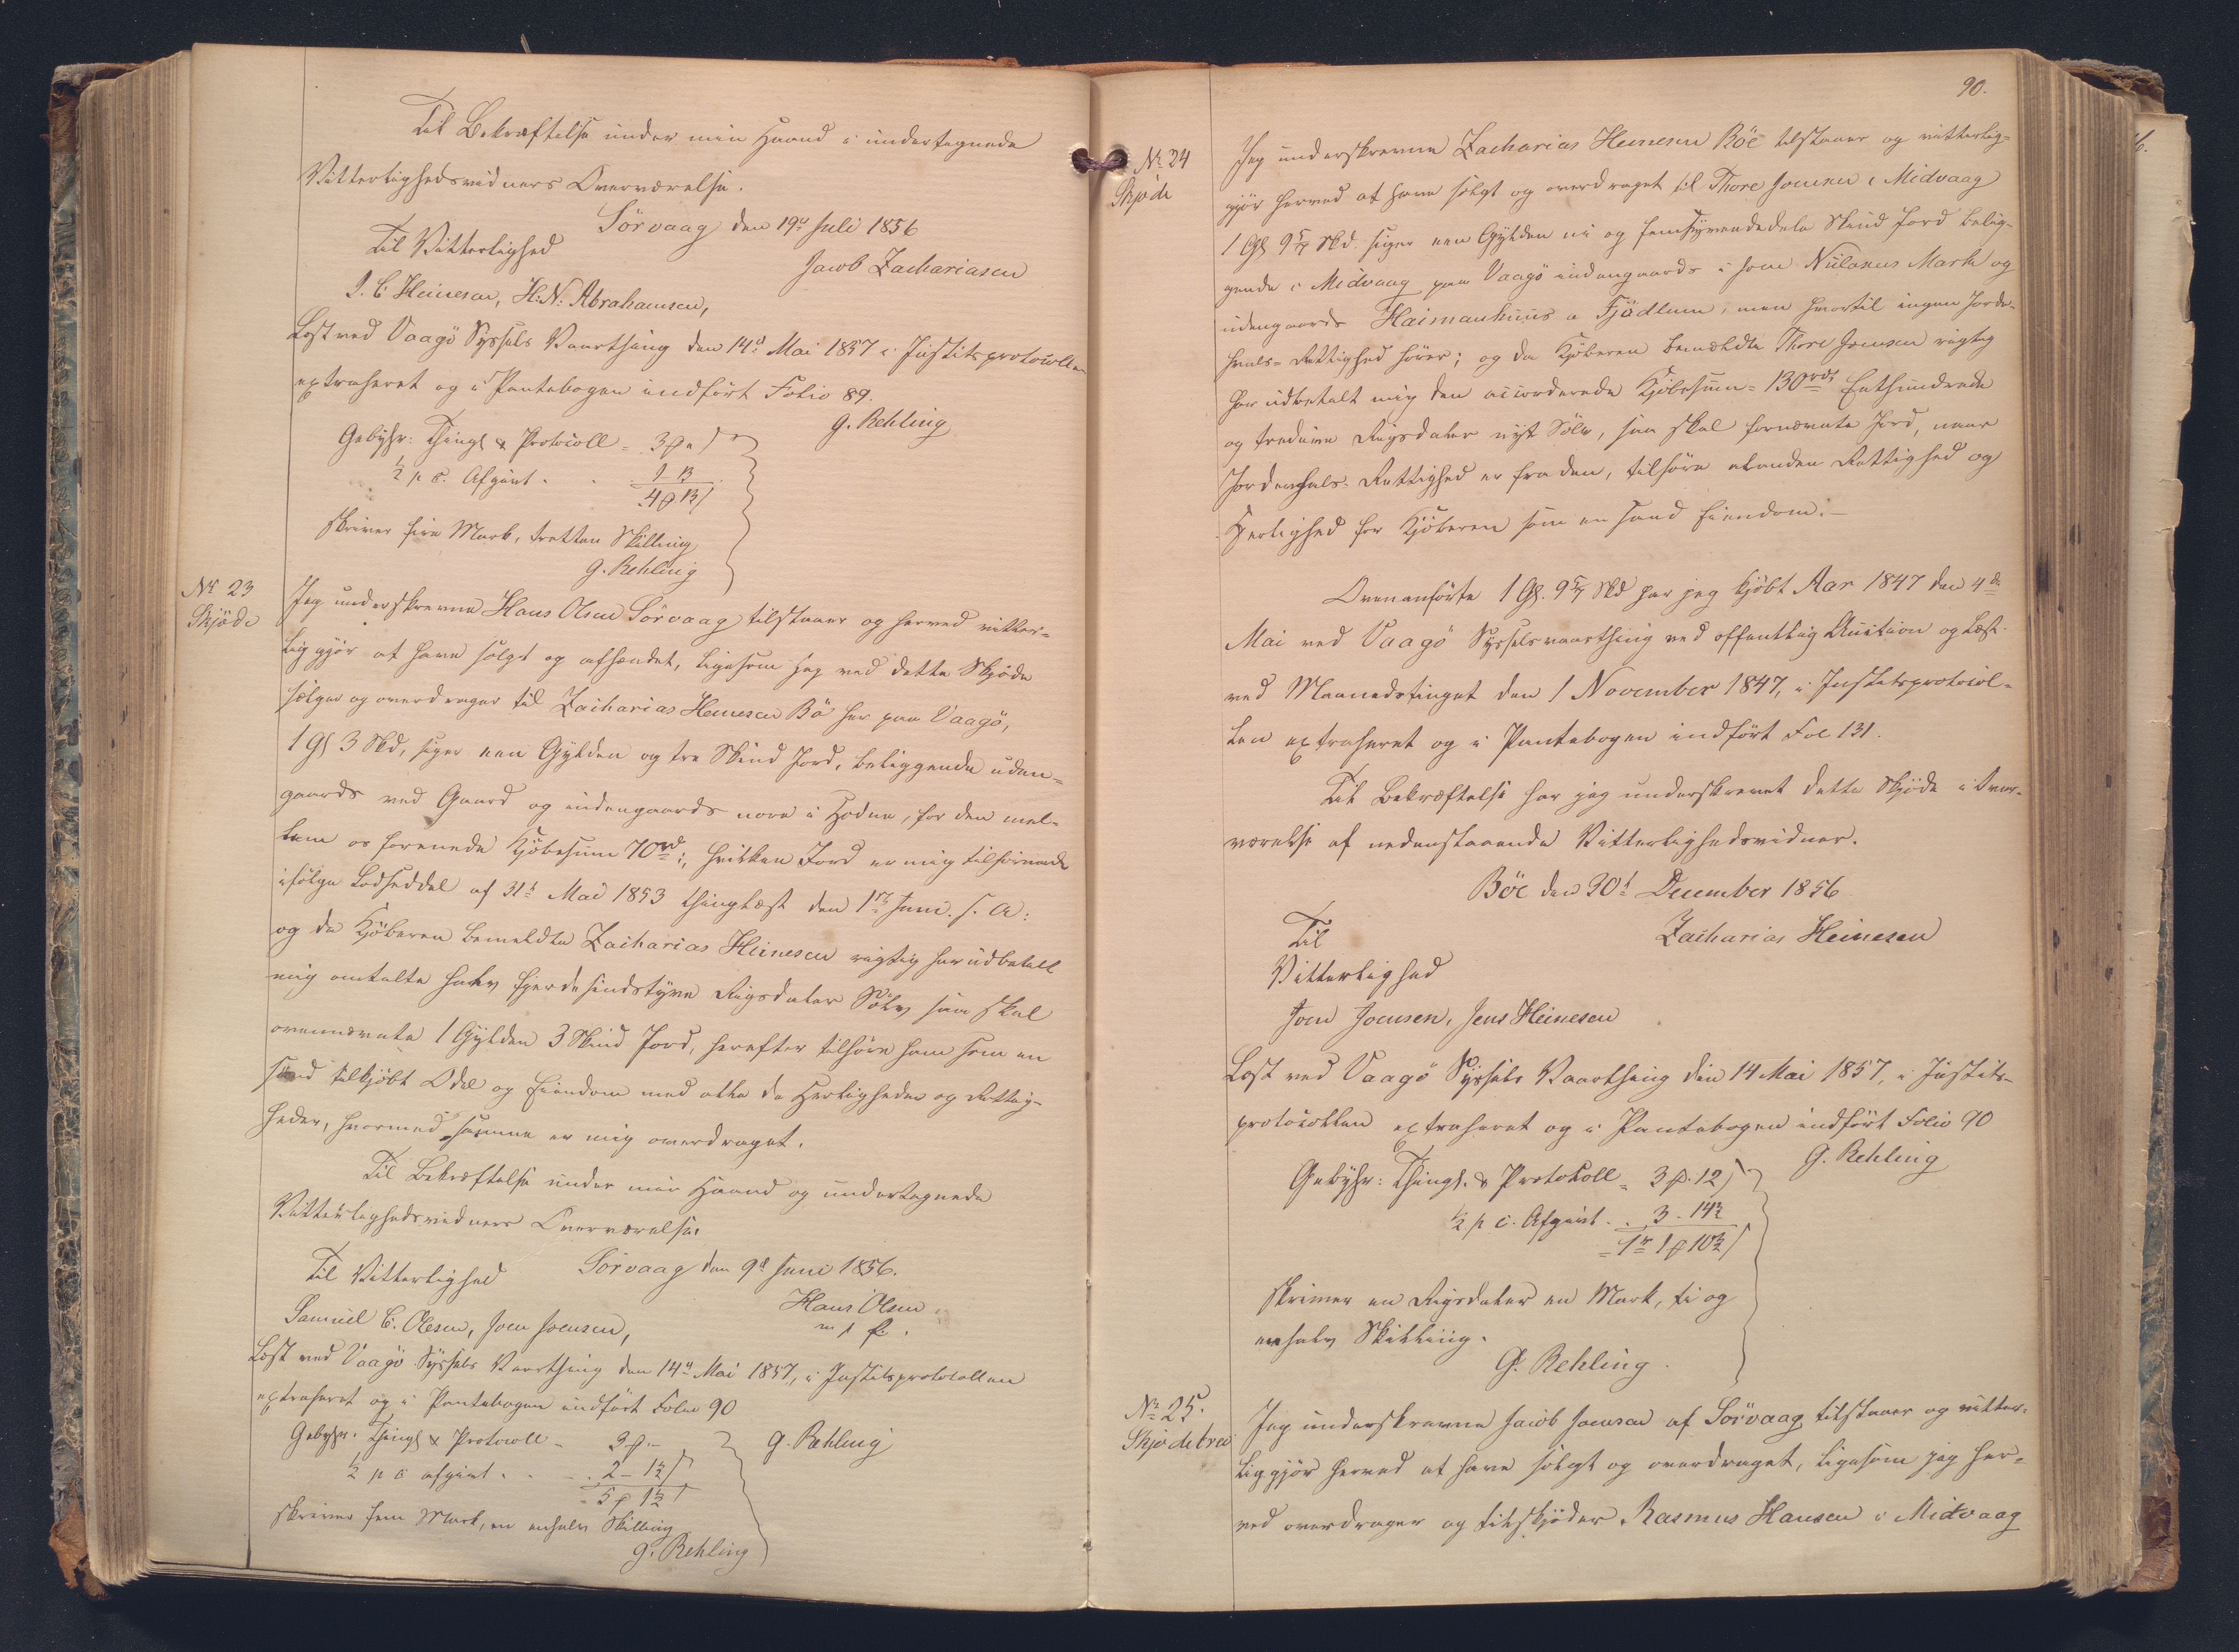 Til Bekræftelse under min Haand i undertegnede
Vitterlighedsvidners Overværelse.
Sörvaag den 19d Juli 1856
Til Vitterlighed
Jacob Zachariasen
J. C. Heinesen, H: N: Abrahamsen,
Læst ved Vaagö Syssels Vaarthing den 14d Mai 1857 i Justitsprotocollen
extraheret og i Pantebogen indfört Folio 89.
G. Rehling
Gebyhr: Thingl & Protocoll = 3 
½ p c. Afgivt . . 1 13
4 13
skriver fire Mark, tretten Skilling
G. Rehling
No 23
Skjöde
Jeg underskrevne Hans Olsen Sörvaag tilstaaer og herved vitter=
liggjör at have solgt og afhændet, ligesom jeg ved dette Skjöde
sælger og overdrager til Zacharias Heinesen Bö her paa Vaagö,
1 Gl 3 Skd, siger een Gylden og tre Skind Jord, beliggende uden=
gaards ved Gaard og indengaards nore i Hodne, for den mel=
lem os forenede Kjöbesum 70rd:, hvilken Jord er mig tilhörende
ifölge Lodseddel af 31t Mai 1853 thinglæst den 1ste Juni s. A:
og da Kjöberen bemeldte Zacharias Heinesen rigtig har udbetalt
mig omtalte halv fjerdesindstyve Rigsdaler Sölv saa skal
ovennævnte 1 Gylden 3 Skind Jord, herefter tilhöre ham som en
sand tilkjöbt Odel og Eiendom med alle de Herligheder og Rettig=
heder, hvormed samme er mig overdraget.
Til Bekræftelse under min Haand og undertegnede
Vitterlighedsvidners Overværelse.
Sörvaag den 9d Juni 1856.
Til Vitterlighed
Hans Olsen
m f P.
Samuel C. Olesen, Joen Joensen,
Læst ved Vaagö Syssels Vaarthing den 14d Mai 1857, i Justitsprotocollen
extraheret og i Pantebogen indfört Folio 90
G. Rehling
Gebyhr. Thingl & Protocoll = 3 -
½ p c afgivt . . - 2 - 1½
= 5 1½
skriver fem Mark, en enhalv Skilling
G. Rehling
90.
No 24
Skjöde
Jeg underskrevne Zacharias Heinesen Böe tilstaaer og vitterlig=
gjör herved at have solgt og overdraget til Thore Joensen i Midvaag
1 Gl 9 5/7 Skd. siger een Gylden ni og femsyvendedele Skind Jord belig=
gende i Midvaag paa Vaagö indengaards i som Nielanus Mark og
udengaards Haimanhuus a Fjödlum, men hvortil ingen Jorde=
hvals= Rettighed hörer; og da Kjöberen bemældte Thore Joensen rigtig
har udbetalt mig den accorderede Kjöbesum = 130rd Eethundrede
og tredive Rigsdaler nyt Sölv, saa skal fornævnte Jord, naar
Jordenhals= Rettighed er fra den, tilhöre al anden Rettighed og
Herlighed for Kjöberen som en sand Eiendom.-
Ovenanförte 1 Gl. 9 5/7 Skd har jeg kjöbt Aar 1847 den 4de
Mai ved Vaagö Sysselsvaarthing ved offentlig Auction og læst
ved Maanedstinget den 1 November 1847, i Justitsprotocol=
len extraheret og i Pantebogen indfört Fol 131.
Til Bekræftelse har jeg underskrevet dette Skjöde i Over=
værelse af nedenstaaende Vitterlighedsvidner.
Böe den 30t December 1856
Zacharias Heinesen
Til
Vitterlighed
Joen Joensen, Jens Heinesen
Læst ved Vaagö Syssels Vaarthing den 14 Mai 1857, i Justits=
protocollen extraheret og i Pantebogen indfört Folio 90
G. Rehling
Gebyhr: Thingl. & Protokoll = 3 . 12
½ p c. Afgivt . . 3 - 14½
= 1rd 1 10½
skriver en Rigsdaler en Mark, ti og
enhalv Skilling.
G. Rehling.
No 25.
Skjödebrev
Jeg underskrevne Jacob Joensen af Sörvaag tilstaaer og vitter=
liggjör herved at have solgt og overdraget, ligesom jeg her=
ved overdrager og tilskjöder Rasmus Hansen i Midvaag